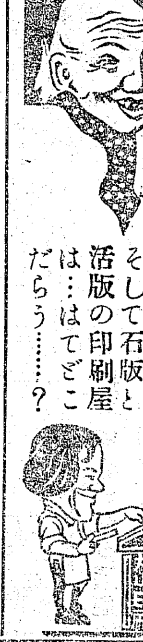 そして石版と
活版の印刷屋
は…はてどこ
だらう……?